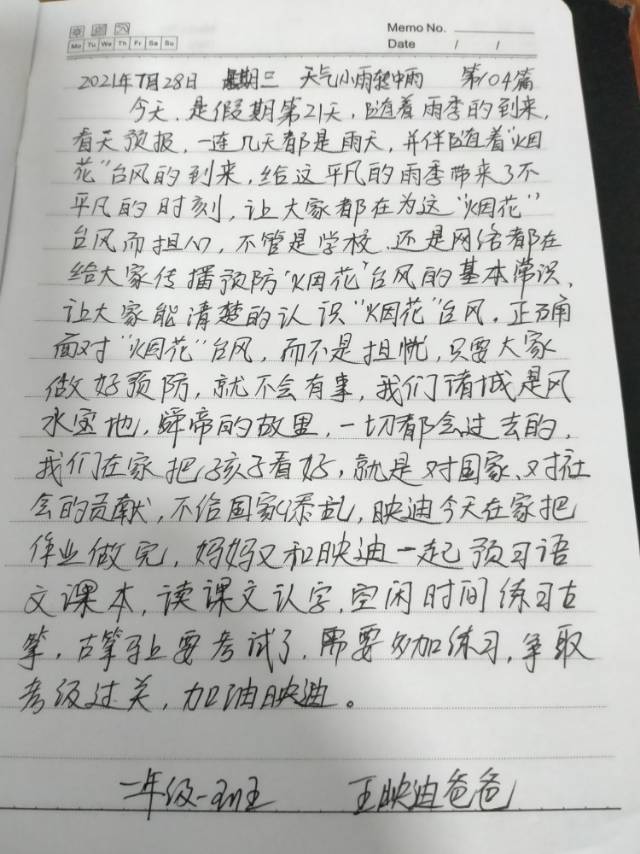 Memo No.
Mo Tu We Th Fr Sa Su
Date / /
2021年7月28日 星期三 天气小雨转中雨 第104篇
今天,是假期第21天,随着雨季的到来,
看天预报,一连几天都是雨天,并伴随着"烟
花"台风的到来,给这平凡的雨季带来了不
平凡的时刻,让大家都在为这"烟花"
台风而担心,不管是学校,还是网络都在
给大家传播预防"烟花"台风的基本常识,
让大家能清楚的认识"烟花"台风,正确
面对"烟花"台风,而不是担忧,只要大家
做好预防,就不会有事,我们诸城是风
水宝地,舜帝的故里,一切都会过去的,
我们在家把孩子看好,就是对国家、对社
会的贡献,不给国家添乱,映迪今天在家把
作业做完,妈妈又和映迪一起预习语
文课本,读课文认字,空闲时间练习古
筝,古筝马上要考试了,需要多加练习,争取
考级过关,加油映迪。
一年级一班 王映迪爸爸